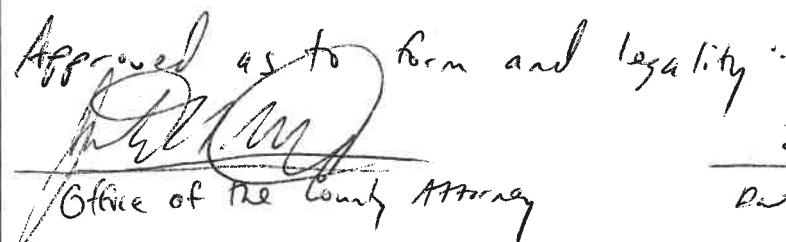 Approved as to form and legality:
Office of the County Attorney